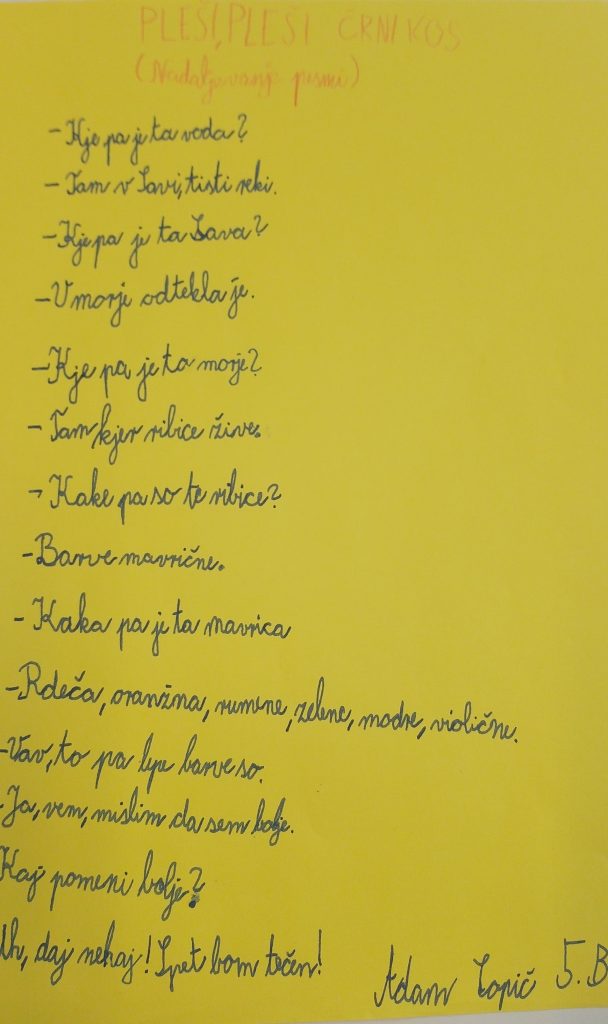 PLEŠI, PLEŠI ČRNI KOS
(Nadaljevanje pesmi)
- Kje pa je ta voda?
- Tam v Savi, tisti reki.
- Kje pa je ta Sava?
- V morje odtekla je.
- Kje pa je to morje?
- Tam kjer ribice žive.
- Kake pa so te ribice?
- Barve mavrične.
- Kaka pa je ta mavrica
- Rdeča, oranžna, rumene, zelene, modre, violične.
- Vav, to pa lpe barve so.
- Ja, vem, mislim da sem bolje.
Kaj pomeni bolje?
Uh, daj nehaj! Spet bom točen!
Adam Čopič 5.B